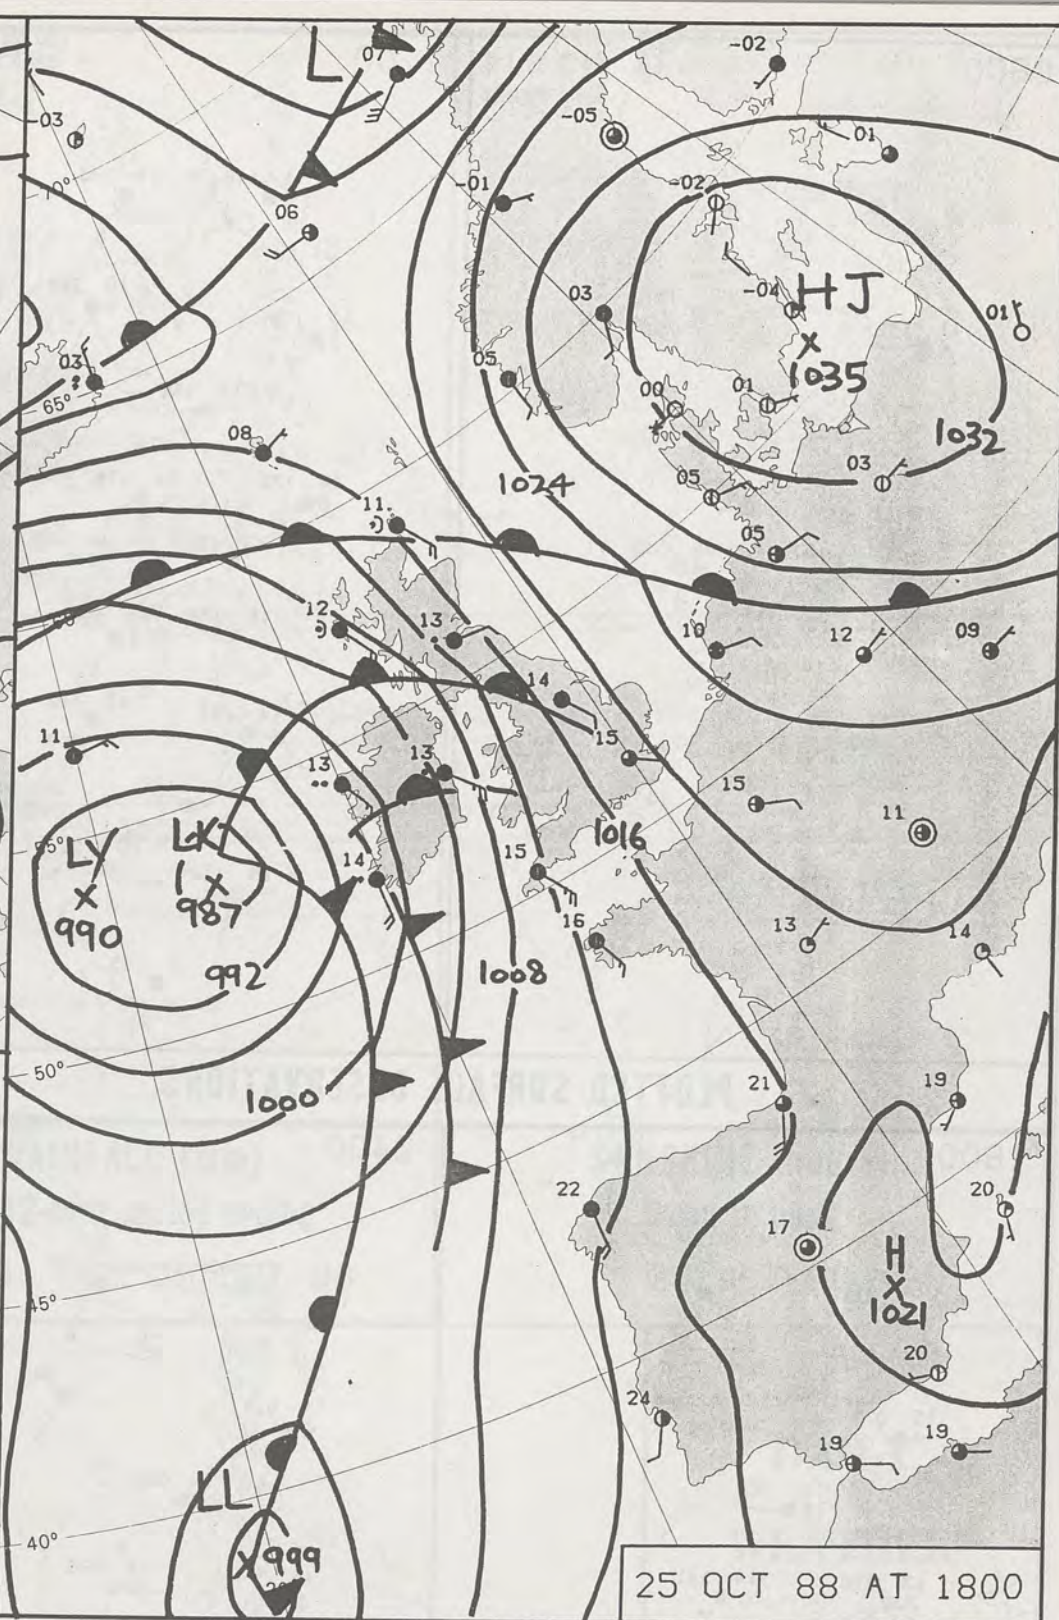 L
07
-02
-03
-05
01
70°
-01
-02
06
-04
HJ
03
01
X
1035
03
05
65°
00
01
1032
08
1024
05
03
11
05
60
12
13
10
12
09
14
11
15
13
13
15
11
55°
LY
LK
1016
X
990
X
987
14
15
16
13
14
992
1008
50°
1000
21
19
22
20
17
H
X
1021
45°
20
24
19
19
LL
40°
X 999
25 OCT 88 AT 1800